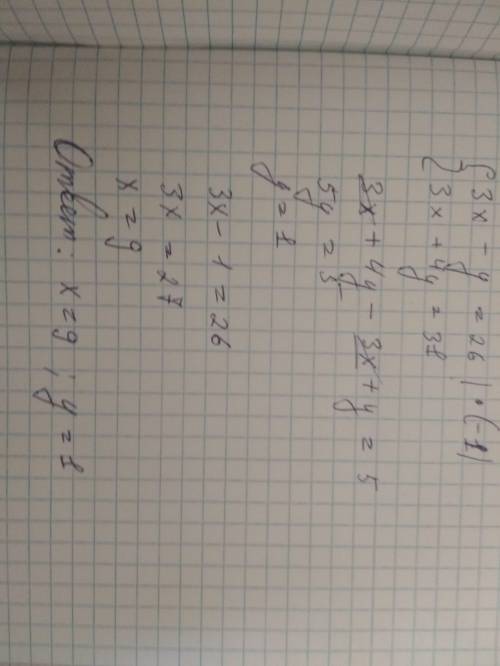 { 3x - y = 26 | · (-1)
{ 3x + 4y = 31
3x + 4y - 3x + y = 5
5y = 5
y = 1
3x - 1 = 26
3x = 27
x = 9
Ответ: x = 9; y = 1